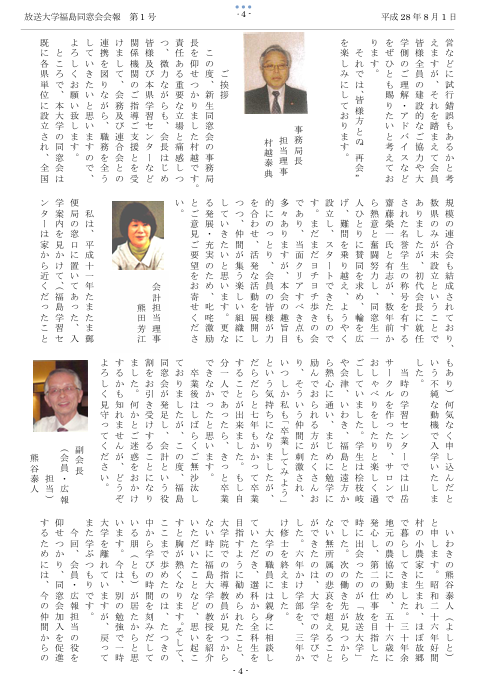 放送大学福島同窓会会報　第１号
- 4 -
平成 28 年 8 月 1 日
営などに試行錯誤もあるかと考
えますが、それを踏まえて会員
皆様全員の建設的なご協力や大
学側のご理解・アドバイスなど
をぜひとも賜りたいと考えてお
ります。
それでは、皆様方との〝再会〟
を楽しみにしております。
事務局長
担当理事
村越泰典
ご挨拶
この度、新生同窓会の事務局
長を仰せつかりました村越です。
責任ある重要な立場と痛感しつ
つ、微力ながらも、会長はじめ
皆様及び本県学習センターなど
関係機関のご指導ご支援とを受
けまして、会務及び連合会との
連携を図りながら、職務を全う
していきたいと思いますので、
よろしくお願い致します。
ところで、本大学の同窓会は
既に各県単位に設立され、全国
規模の連合会も結成されており、
数県のみが未設立ということで
ありましたが、初代会長に就任
された名誉学生の称号を有する
齋藤榮一氏と有志が、数年前か
ら熱意と奮闘努力し、同窓生一
人ひとりに賛同を求め、輪を広
げ、難問を乗り越え、ようやく
設立し、スタートできたもので
す。まだまだヨチヨチ歩きの会
であり、当面クリアすべき点も
多々ありますが、本会の趣旨目
的にのっとり、会員の皆様が力
を合わせ、活発な活動を展開し
つつ、仲間が集う楽しい組織に
していきたいと思います。更な
る発展・充実のため、叱咤激励
とご意見ご要望をお寄せくださ
い。
会計担当理事
熊田芳江
私は、平成十一年たまたま郵
便局の窓口に置いてあった、入
学案内を見かけて、「福島学習セ
ンターは家から近くだったこと
もあり」何気なく申し込んだと
いう不純な動機で入学いたしま
した。
当時の学習センターでは山岳
サークルを作ったり、サロンで
おしゃべりをしたりと楽しく過
ごしていました。学生は桧枝岐
や会津、いわき、福島と遠方か
ら熱心に通い、まじめに勉学に
励んでおられる方がたくさんお
り、そういう仲間に刺激され、
いつしか私も「卒業してみよう」
という気持ちになりましたが、
だらだらと七年もかかって卒業
することが出来ました。もし自
分一人であったら、きっと卒業
できなかったと思います。
卒業後はしばらくご無沙汰し
ておりましたが、この度、福島
同窓会が発足し、会計という役
割をお引き受けすることになり
ました。何かとご迷惑をおかけ
するかも知れませんが、どうぞ
よろしく見守ってください。
副会長
（会員・広報
担当）
熊谷泰人
いわきの熊谷泰人（よしと）
と申します。昭和二十六年好間
村の小農家に生まれ、ほぼ故郷
で暮らしてきました。三十年余
地元の農協に勤め、五十六歳に
発心し、第二の仕事を目指した
時に出会ったのが「放送大学」
でした。次の働き先が見つから
ない無所属の悲哀を超えること
ができたのは、大学での学びで
した。六年かけ学部を、三年か
け修士を終えました。
大学の職員には親身に相談し
ていただき、選科から全科生を
目指すように勧められたこと、
大学院での指導教員が見つから
ない時に福島大学の教授を紹介
いただいたことなど、思い起こ
すと胸が熱くなります。そして、
ここまで歩めたのは、たつきの
中から学びの時間を刻みだして
いる朋（とも）が居たからと思
います。今は、別の勉強で一時
大学を離れていますが、戻って
また学ぶつもりです。
今回、会員・広報担当の役を
仰せつかり、同窓会加入を促進
するためには、今の仲間からの
- 4 -